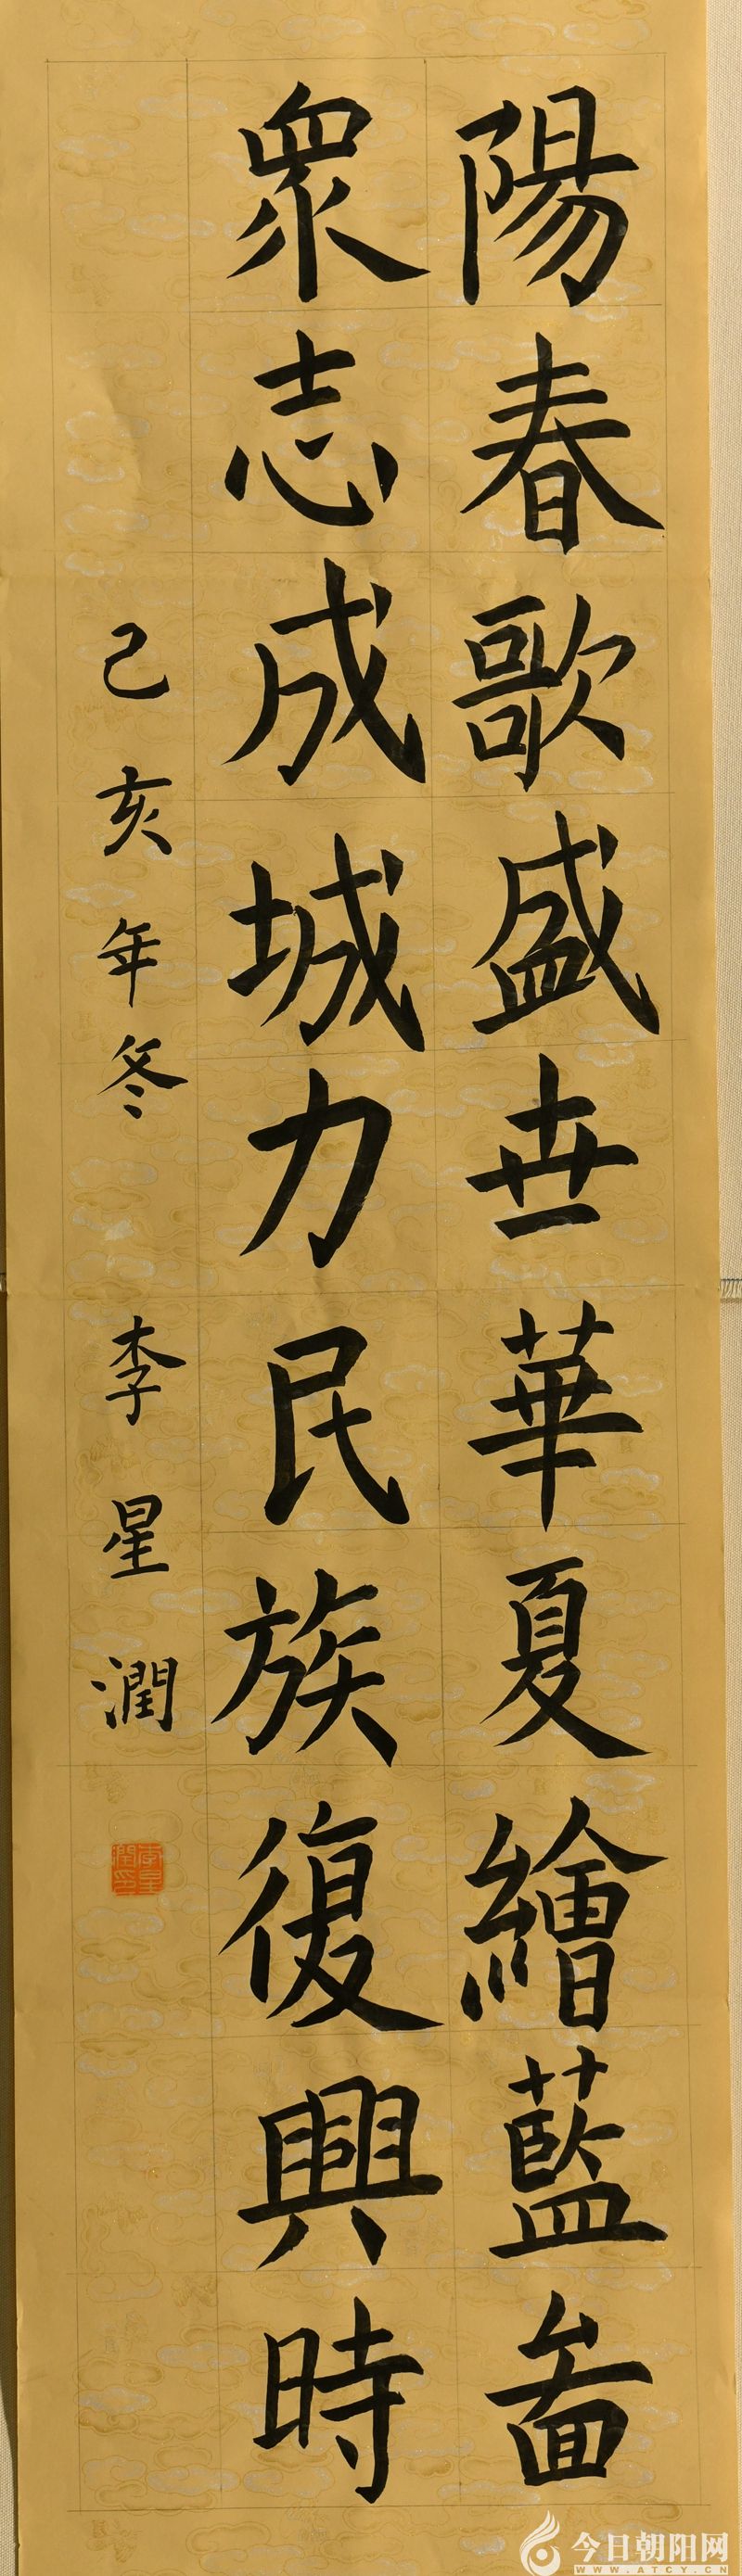 陽春歌盛世華夏繪藍啚
眾志成城力民族復興時
己亥年冬 李星潤
李星潤印
今日朝阳网
WWW.ATCY.CN